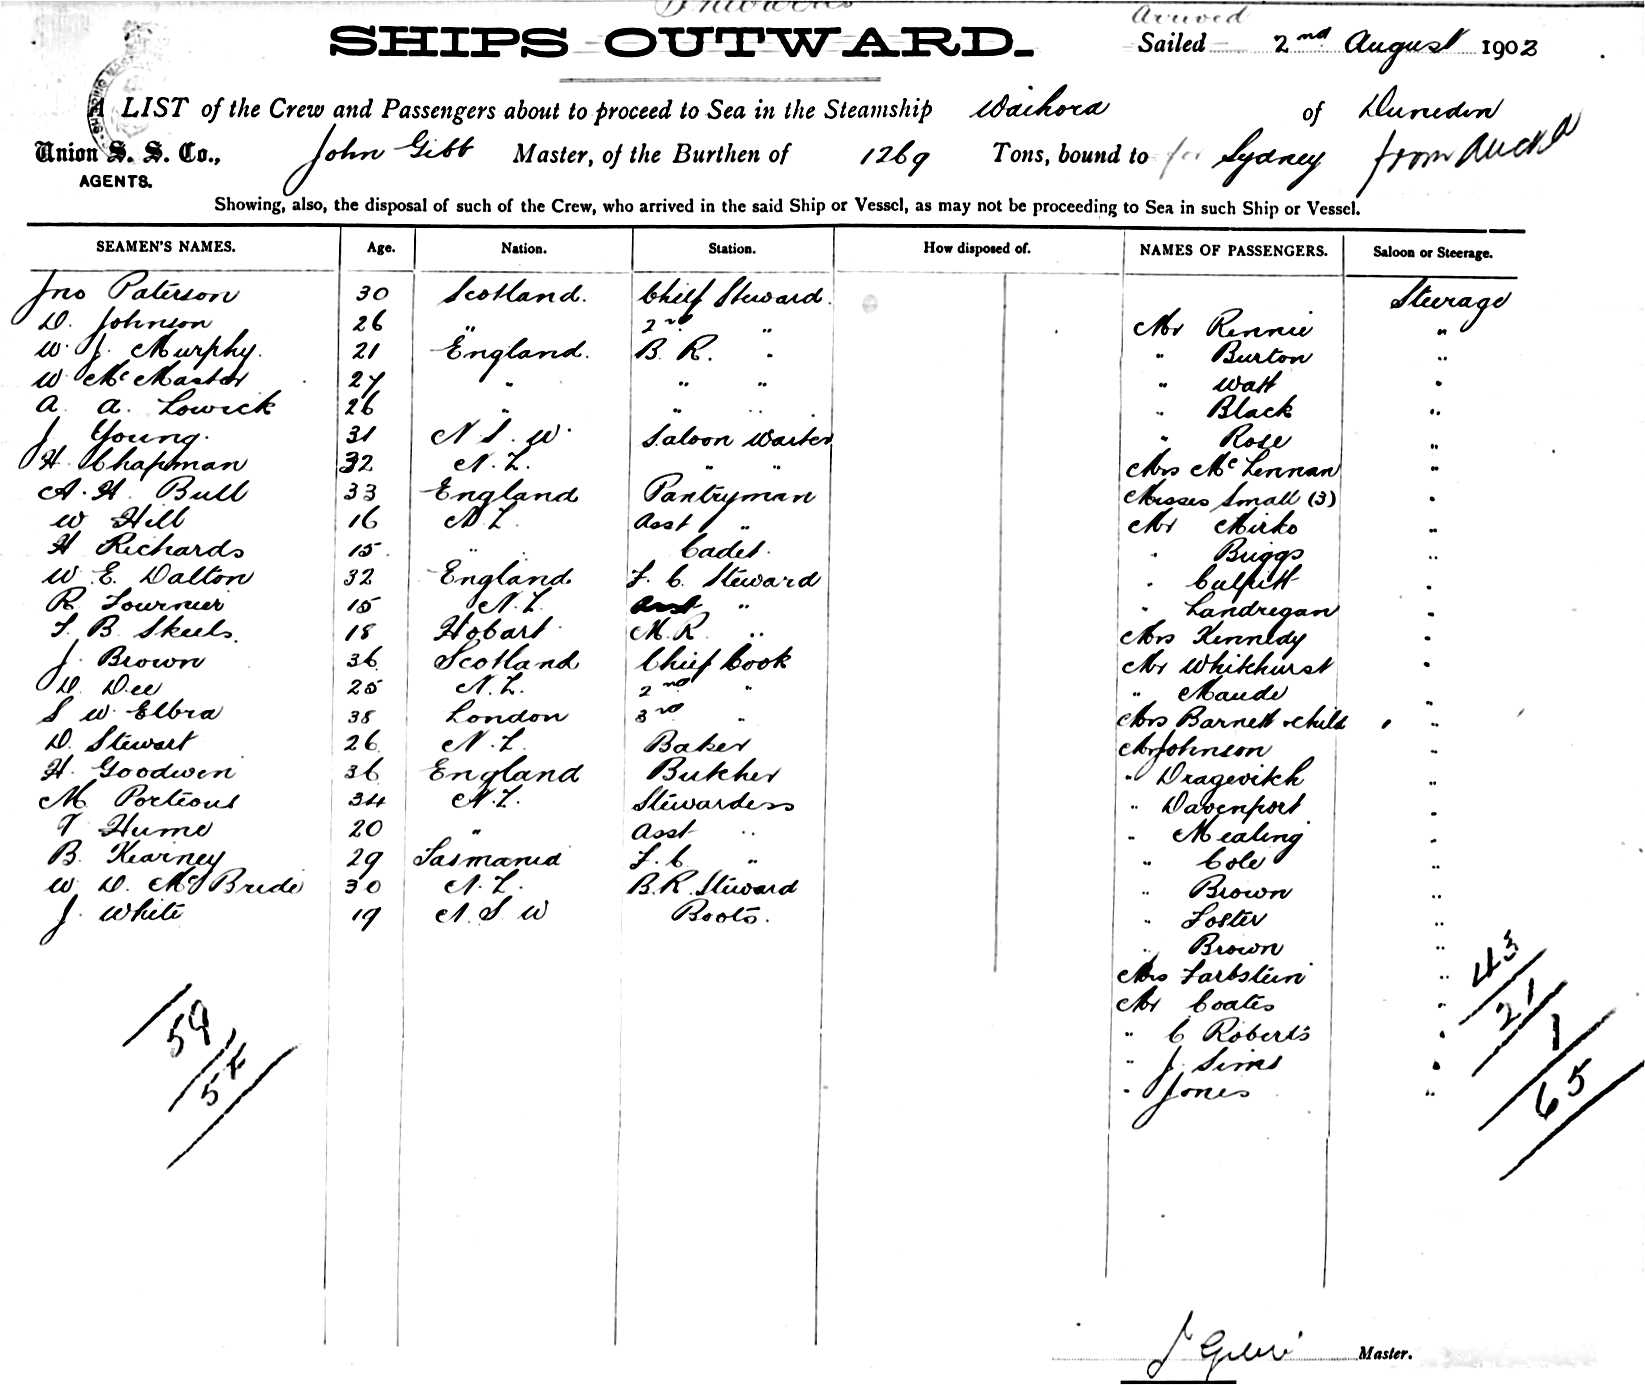 Inwards
SHIPS OUTWARD.
Arrived
Sailed 2nd August 1903
A LIST of the Crew and Passengers about to proceed to Sea in the Steamship Waihora of Dunedin
Union S. S. Co., John Gibb Master, of the Burthen of 1269 Tons, bound to for Sydney from Auckld
AGENTS.
Showing, also, the disposal of such of the Crew, who arrived in the said Ship or Vessel, as may not be proceeding to Sea in such Ship or Vessel.
SEAMEN'S NAMES. Age. Nation. Station. How disposed of. NAMES OF PASSENGERS. Saloon or Steerage.
Jno Paterson 30 Scotland. Chief Steward. Steerage
D. Johnson 26 " 2nd " Mr Rennie "
W. J. Murphy. 21 England. B. R. " " Burton "
W McMaster 27 " " " " Watt "
A. A. Lowick 26 " " " " Black "
J Young. 31 N S. W. Saloon Waiter " Rose "
H Chapman 32 N. Z. " " Mrs McLennan "
A. H. Bull 33 England Pantryman Misses Small (3) "
W Hill 16 N. Z. Asst " Mr Mirko "
H Richards 15 " Cadet. " Briggs "
W. E. Dalton 32 England F. C. Steward " Culpitt "
R. Fournier 15 N. Z. Asst " " Landregan "
F. B. Skeels. 18 Hobart M. R. " Mrs Kennedy "
J. Brown 36 Scotland Chief Cook Mr Whitehurst "
D. Dee 25 N. Z. 2nd " " Maude "
S W. Elbra 38 London 3rd " Mrs Barnett & child "
D. Stewart 26 N. Z. Baker Mr Johnson "
H. Goodwin 36 England Butcher " Dragevitch "
M Porteous 34 N. Z. Stewardess " Davenport "
Hume 20 " Asst " " Mealing "
B. Kearney 29 Tasmania F. C " " Cole "
W. D. McBride 30 N. Z. B. R. Steward " Brown "
J. White 19 N. S W Boots. " Foster "
" Brown "
Mrs Farbstein "
Mr Coates "
" C Roberts "
" J. Sims "
" Jones "
43
21
1
65
59
54
Master.